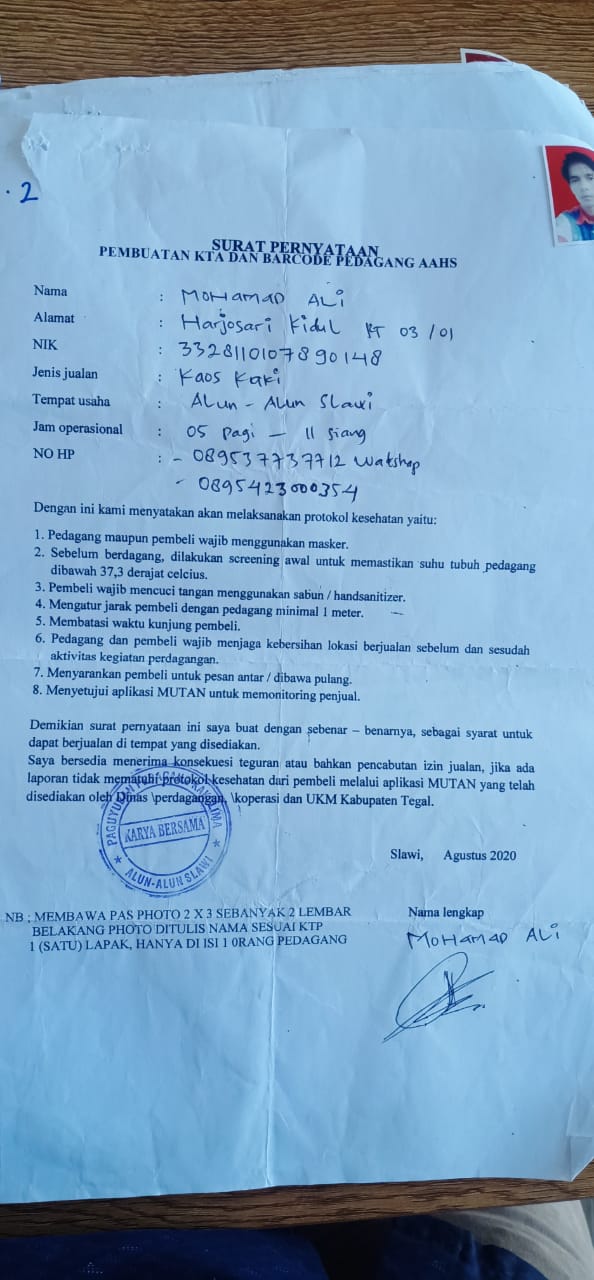 . 2
SURAT PERNYATAAN
PEMBUATAN KTA DAN BARCODE PEDAGANG AAHS
Nama : MOHAMAD ALi
Alamat : Harjosari Kidul RT 03 /01
NIK : 3328110107890148
Jenis jualan : Kaos Kaki
Tempat usaha : ALun - ALun SLawi
Jam operasional : 05 Pagi - 11 Siang
NO HP : - 089537737712 Watshap
- 0895423000354
Dengan ini kami menyatakan akan melaksanakan protokol kesehatan yaitu:
1. Pedagang maupun pembeli wajib menggunakan masker.
2. Sebelum berdagang, dilakukan screening awal untuk memastikan suhu tubuh pedagang
dibawah 37,3 derajat celcius.
3. Pembeli wajib mencuci tangan menggunakan sabun / handsanitizer.
4. Mengatur jarak pembeli dengan pedagang minimal 1 meter.
5. Membatasi waktu kunjung pembeli.
6. Pedagang dan pembeli wajib menjaga kebersihan lokasi berjualan sebelum dan sesudah
aktivitas kegiatan perdagangan.
7. Menyarankan pembeli untuk pesan antar / dibawa pulang.
8. Menyetujui aplikasi MUTAN untuk memonitoring penjual.
Demikian surat pernyataan ini saya buat dengan sebenar – benarnya, sebagai syarat untuk
dapat berjualan di tempat yang disediakan.
Saya bersedia menerima konsekuesi teguran atau bahkan pencabutan izin jualan, jika ada
laporan tidak mematuhi protokol kesehatan dari pembeli melalui aplikasi MUTAN yang telah
disediakan oleh Dinas \perdagangan, \koperasi dan UKM Kabupaten Tegal.
KARYA BERSAMA
ALUN-ALUN SLAWI
Slawi, Agustus 2020
NB : MEMBAWA PAS PHOTO 2 X 3 SEBANYAK 2 LEMBAR
BELAKANG PHOTO DITULIS NAMA SESUAI KTP
1 (SATU) LAPAK, HANYA DI ISI 1 0RANG PEDAGANG
Nama lengkap
MOHAMAD ALi